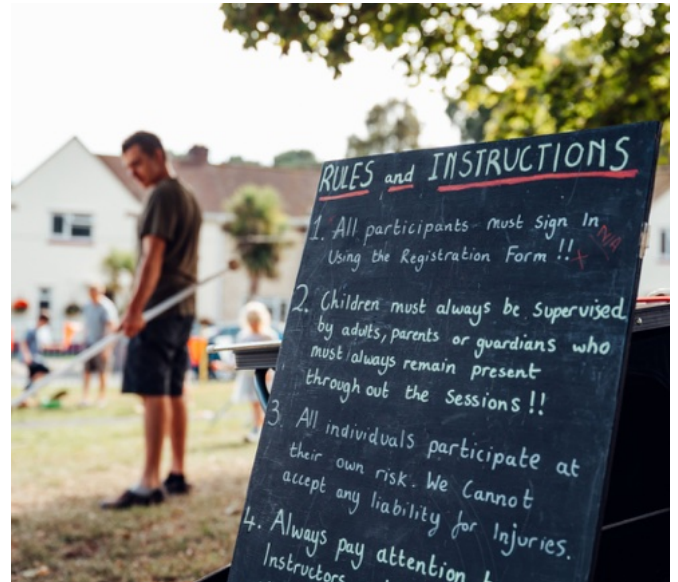 RULES and INSTRUCTIONS
1. All participants must sign In N/A
Using the Registration Form !! x
2. Children must always be Supervised
by adults, parents or guardians who
must always remain present
through out the Sessions !!
3. All individuals participate at
their own risk. We Cannot
accept any liability for Injuries.
4. Always pay attention
Instructors